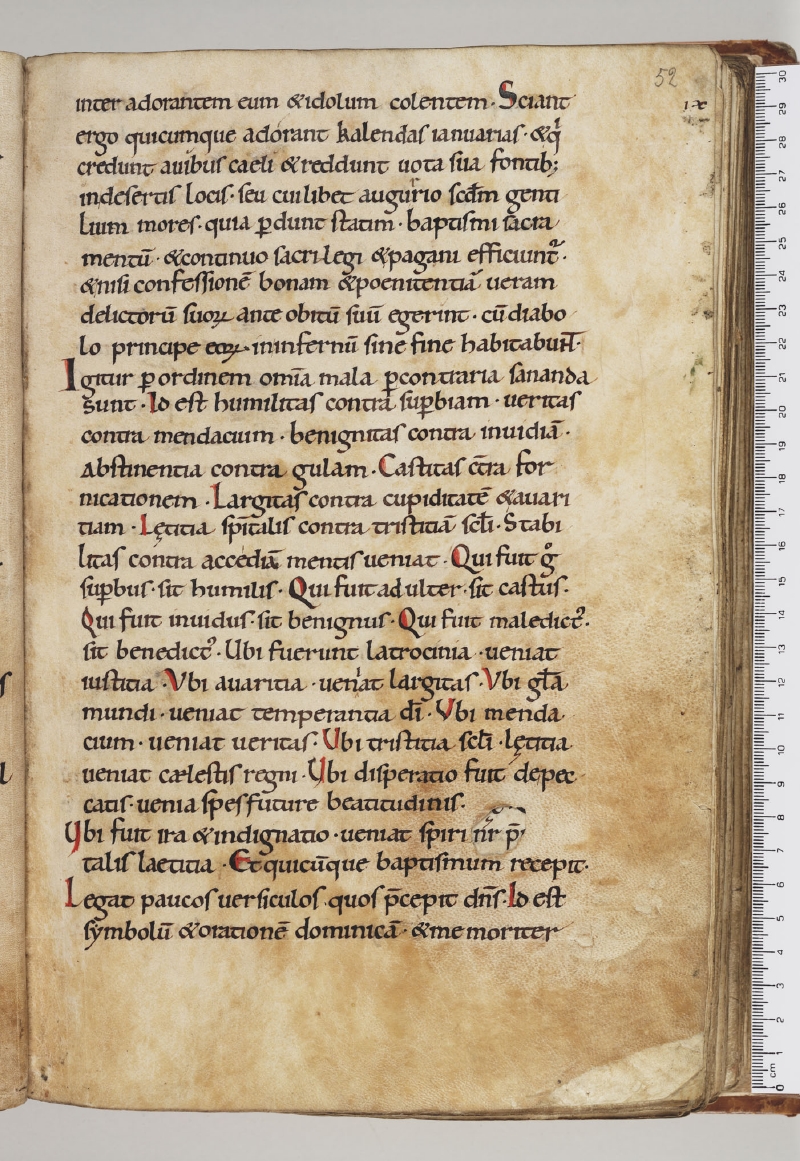 52
ıx
inter adorantem eum &idolum colentem. Sciant
ergo quicumque adorant kalendas ianuarias. &q̇
credunt auibus caeli &reddunt uota sua fontib;
indesertis locis. seu cuilibet augurio scd̄m genti
lium mores. quia ꝑdunt statim. baptismi sacra
mentū. &continuo sacrilegi &pagani efficiunt᷑.
&nisi confessionē bonam &poenitentiā ueram
delictorū suoꝝ ante obitū suū egerint. cū diabo
lo principe eoꝝ. ininfernū sine fine habitabunt̄.
Igitur ꝑ ordinem om̄ia mala ꝑcontraria sananda
sunt. Id est humilitas contra suꝑbiam. ueritas
contra mendacium. benignitas contra inuidiā.
Abstinentia contra gulam. Castitas ct̄ra for
nicationem. Largitas contra cupiditatē &auari
tiam. Lętitia spīitalis contra tristitiā sc̄li. Stabi
litas contra accediā mentis ueniat. Qui fuit g̊
suꝑbus. sit humilis. Qui fuit adulter. sit castus.
Qui fuit inuidus. sit benignus. Qui fuit maledict᾿.
sit benedict᾿. Ubi fuerunt latrocinia. ueniat
iustitia. Vbi auaritia. ueniat largitas. Vbi gl̄a
mundi. ueniat temperantia dī. Vbi menda
cium. ueniat ueritas. Vbi tristitia sc̄li. lętitia
ueniat cælestis regni. Vbi disperatio fuit depec
catis. uenia spes future beatitudinis.
Vbi fuit ira &indignatio. ueniat spiri
talis laetitia. Et quicūque baptismum recepit.
Legat paucos uersiculos. quos p̄cepit dn̄s. Id est
symbolū &orationē dominicā. &memoriter